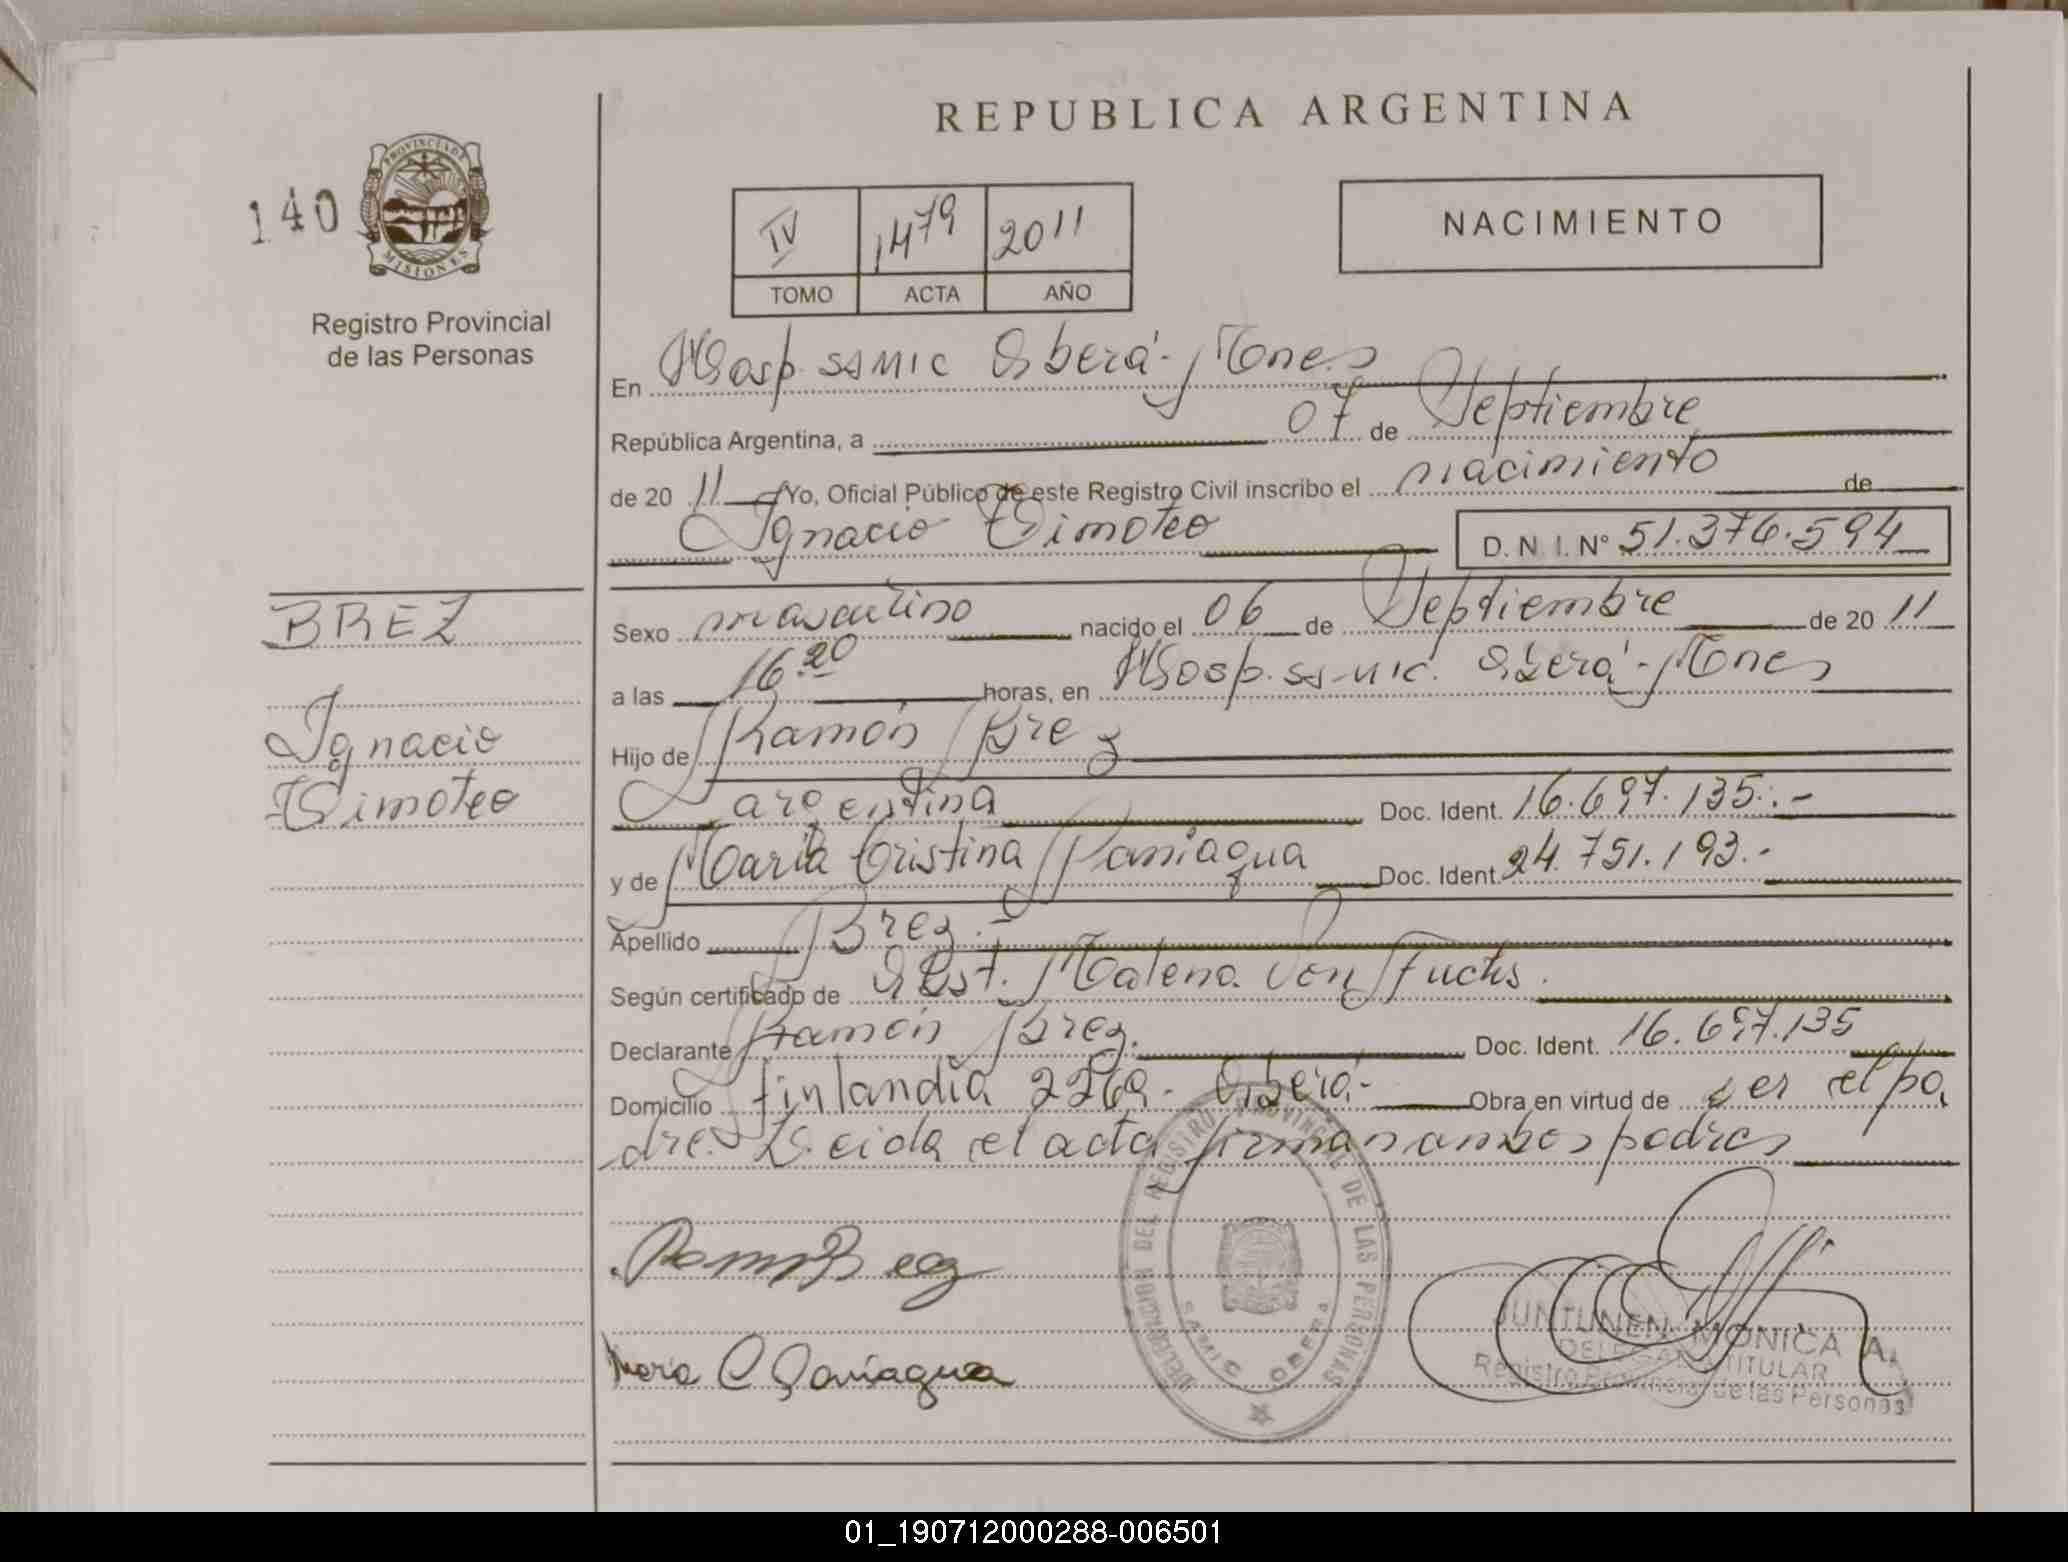 REPUBLICA ARGENTINA
140
PROVINCIA DE
MISIONES
Registro Provincial
de las Personas
IV 1479 2011
TOMO ACTA AÑO
NACIMIENTO
En Hosp. SAMIC Oberá - Mones
República Argentina, a 07 de Septiembre
de 20 11 Yo, Oficial Público de este Registro Civil inscribo el nacimiento de
Ignacio Timoteo D. N. I. N° 51.376.594
BREZ
Ignacio
Timoteo
Sexo masculino nacido el 06 de Septiembre de 20 11
a las 16.20 horas, en Hosp. samic. Oberá - Mones
Hijo de Ramón Brez
argentina Doc. Ident. 16.697.135.-
y de María Cristina Paniagua Doc. Ident. 24.751.193.-
Apellido Brez.-
Según certificado de Obst. Malena Von Fuchs.
Declarante Ramón Brez. Doc. Ident. 16.697.135
Domicilio Finlandia 2269 - Oberá - Obra en virtud de ser el pa
dre. Leida el acta firman ambos padres
Ramón Brez
Maria C Paniagua
DELEGACION DEL REGISTRO PROVINCIAL DE LAS PERSONAS
SAMIC OBERA
JUNTUNEN MONICA A.
DELEGADA TITULAR
Registro Provincial de las Personas
01_190712000288-006501